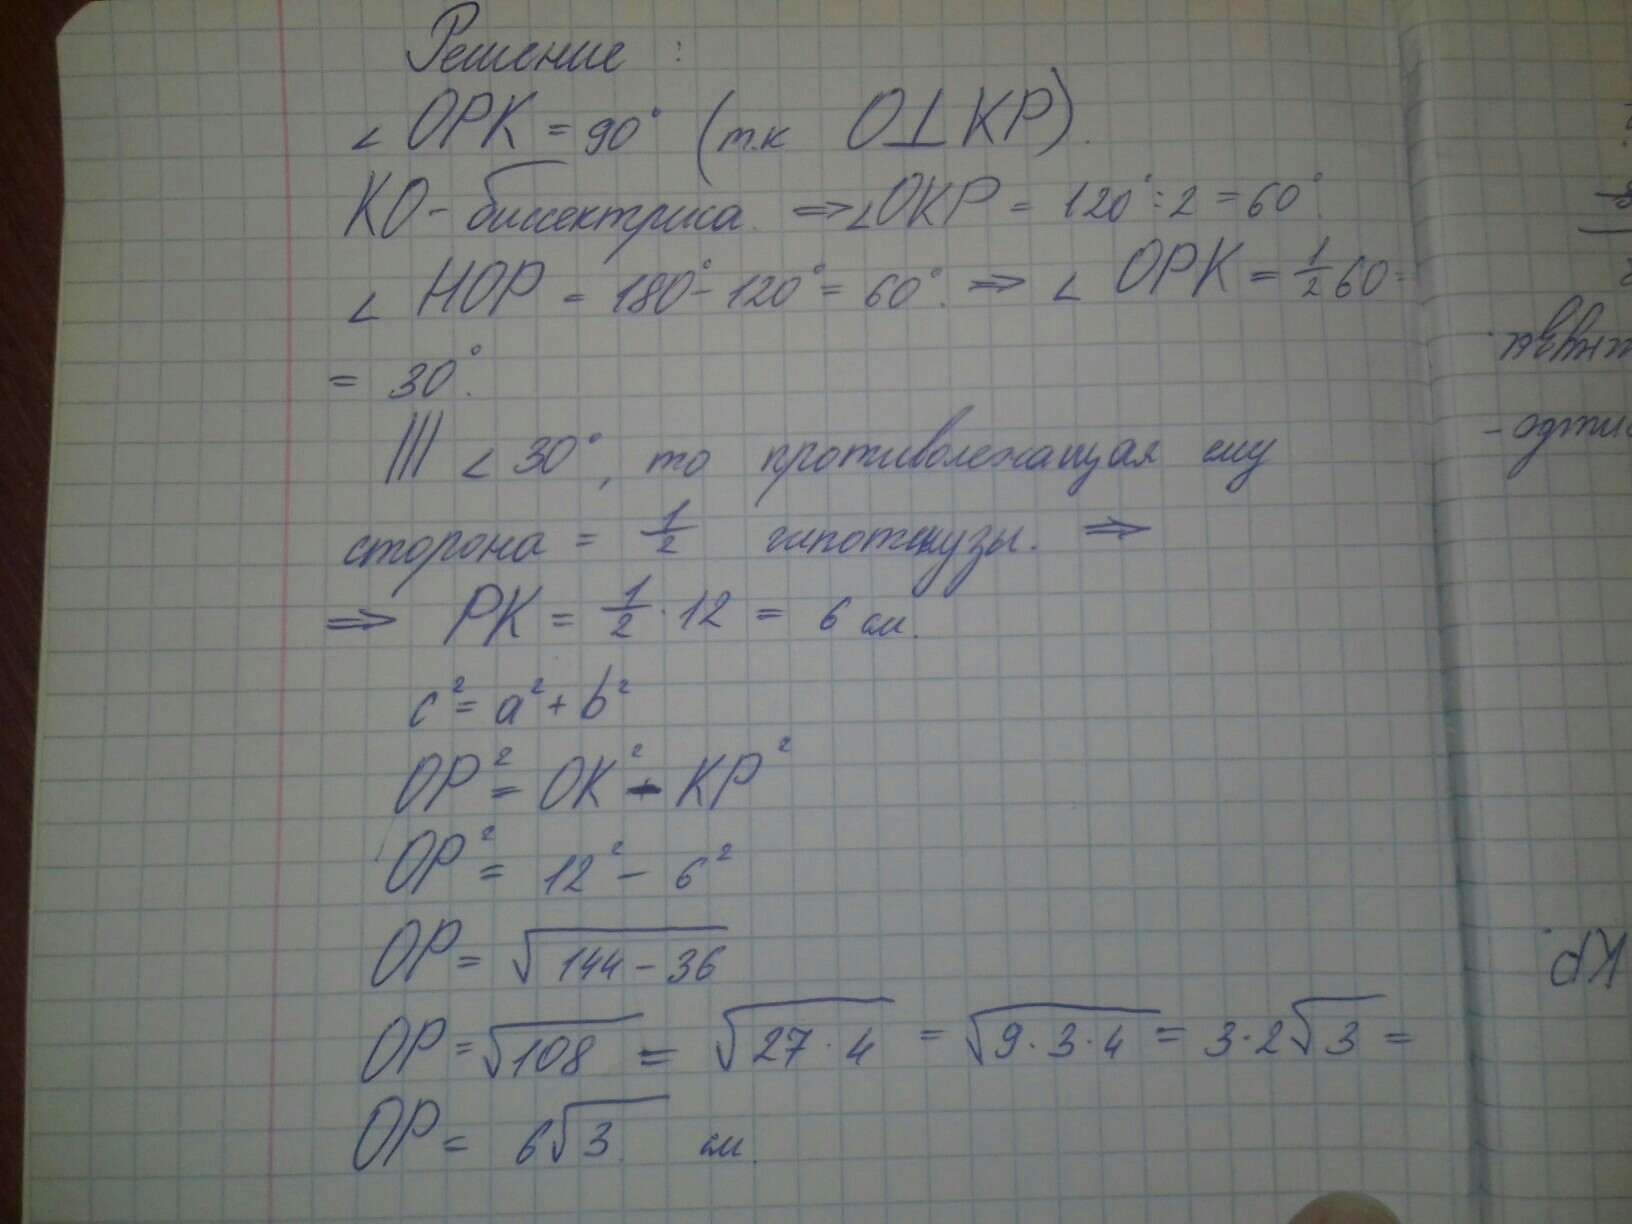 Решение :
∠ OPK = 90° (т.к O⊥KP).
KO - биссектриса. ⇒ ∠OKP = 120° : 2 = 60°.
∠ HOP = 180° - 120° = 60°. ⇒ ∠ OPK = 1/2 60 =
= 30°.
∠ 30°, то противолежащая ему
сторона = 1/2 гипотенузы. ⇒
⇒ PK = 1/2 · 12 = 6 см.
c² = a² + b²
OP² = OK² - KP²
OP² = 12² - 6²
OP = √144 - 36
OP = √108 = √27 · 4 = √9 · 3 · 4 = 3 · 2√3 =
OP = 6√3. см.
KP.